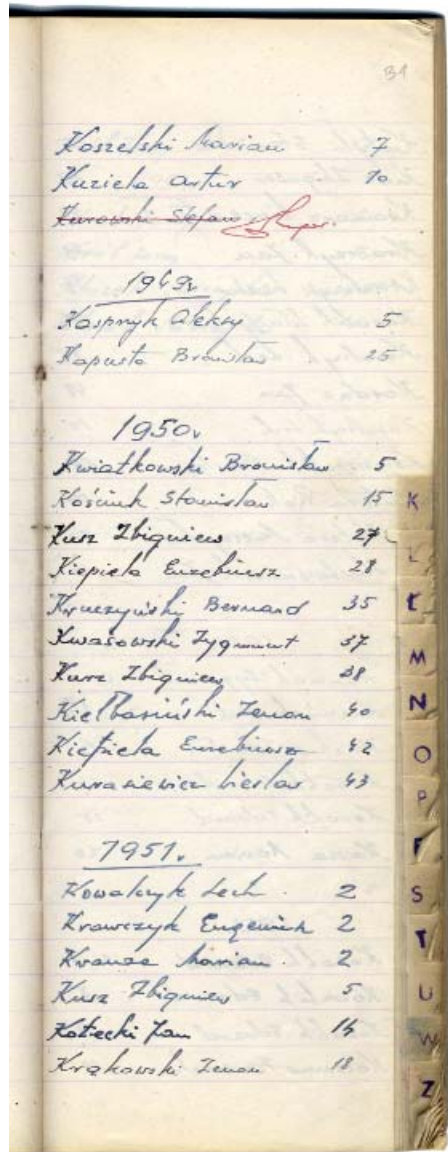 31
Koszelski Marian 7
Kuziela Artur 10
Kurowski Stefan
1949r
Kasprzyk Aleksy 5
Kapusta Bronisław 25
1950r
Kwiatkowski Bronisław 5
Kościuk Stanisław 15
Kurz Zbigniew 27
Kiepiela Euzebiusz 28
Kruczyński Bernard 35
Kwasowski Zygmunt 37
Kurz Zbigniew 38
Kiełbasiński Zenon 40
Kiepiela Euzebiusz 42
Kurasiewicz Wiesław 43
1951r.
Kowalczyk Lech 2
Krawczyk Eugeniusz 2
Krauze Marian 2
Kurz Zbigniew 5
Kotecki Jan 14
Krąkowski Zenon 18
K
L
Ł
M
N
O
P
R
S
T
U
W
Z